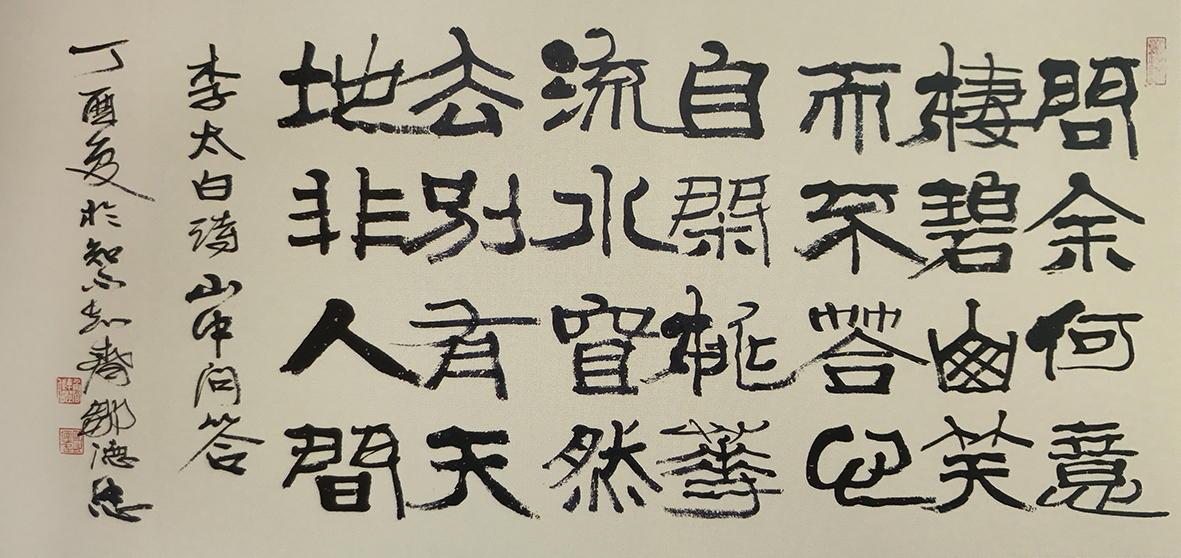 問余何意
棲碧山笑
而不荅心
自閑桃華
流水窅然
去別有天
地非人間
李太白詩山中問答
丁酉夏於知不知齋鄒德忠